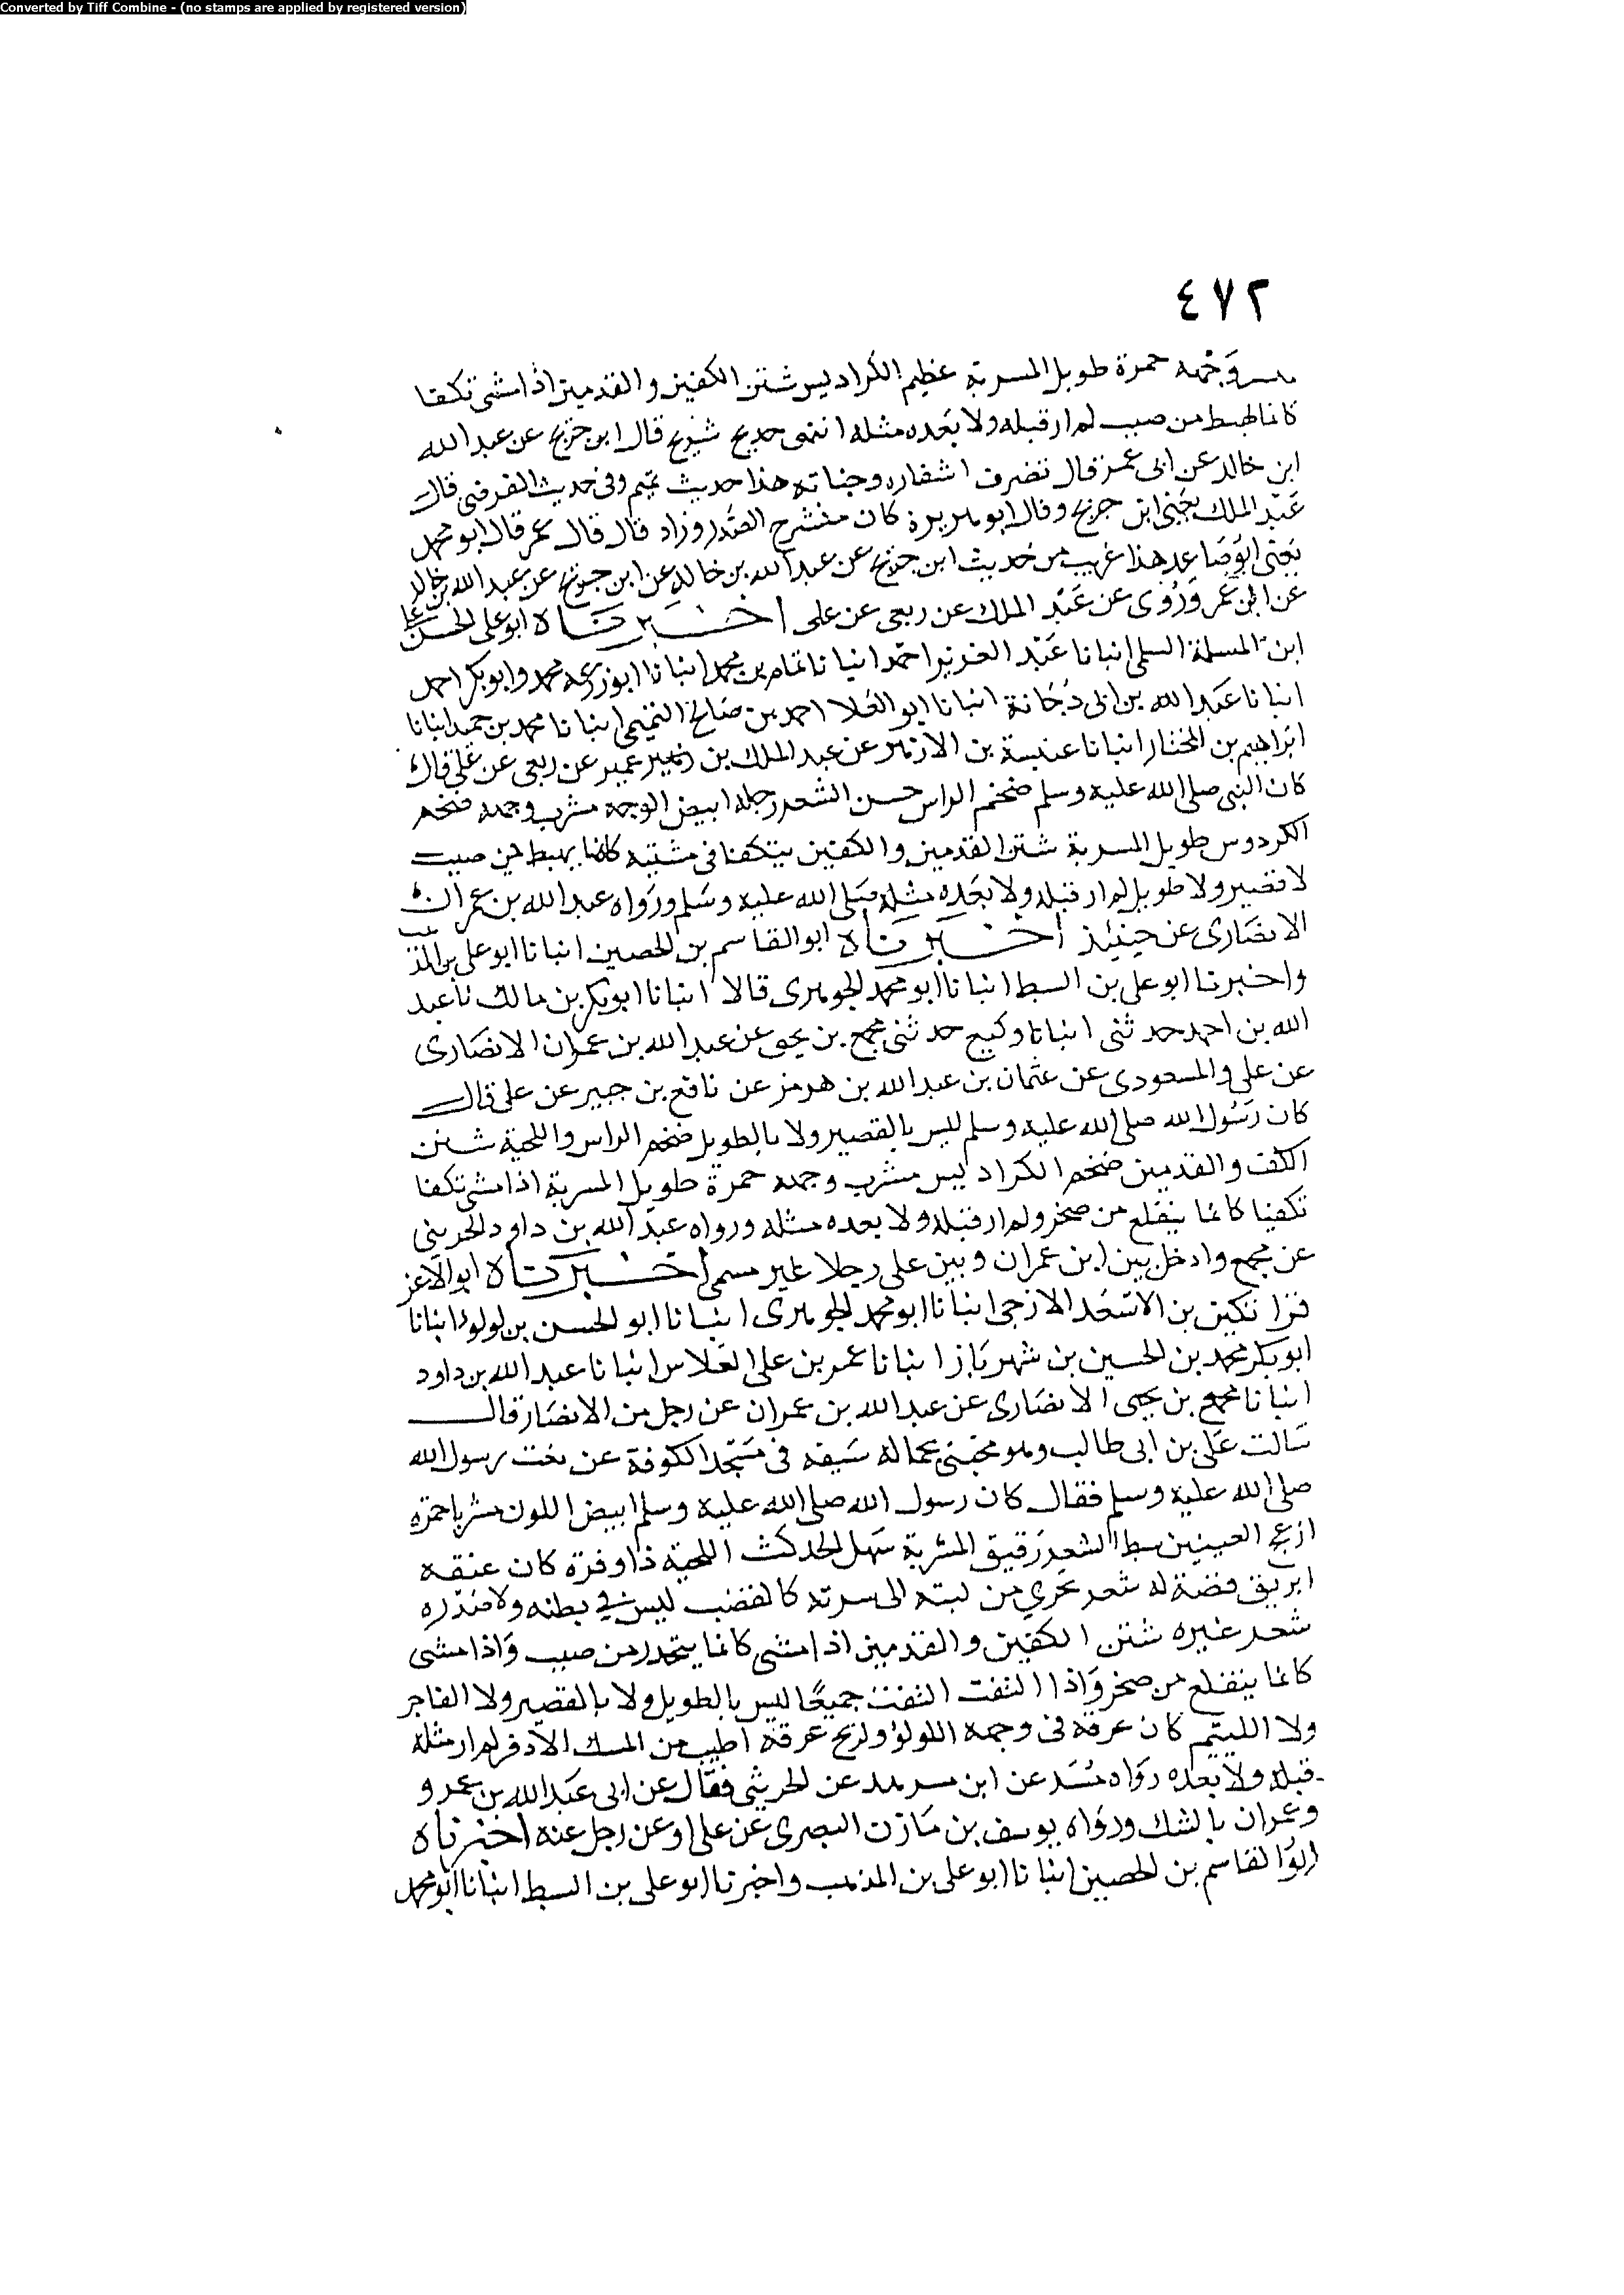 Converted by Tiff Combine - (no stamps are applied by registered version)
٤٧٢
وجهه حمرة طويل المسربة عظيم الكراديس شثن الكفين والقدمين اذا مشى تكفا
كانما يهبط من صبب لم ار قبله ولا بعده مثله انتهى حديث شريح قال ابن جريج عن عبد الله
ابن خالد عن ابى عمر قال اشفاره وجناته هذا حديث تميم وفى حديث القرضى قال
عبد الملك يعنى ابن جريج وقال ابو هريرة كان منشرح الصدر وزاد قال قال عمر قال ابو محمد
يعنى ابو صاعد هذا غريب من حديث ابن جريج عن عبد الله بن خالد عن ابن جريج عن عبد الله بن خالد
عن ابن عمر وروى عن عبد الملك عن ربعى عن على اخبرناه ابو على الحسن
ابن المسلمة السلمى انبانا عبد العزيز احمد انبانا تمام بن محمد انبانا ابو زرعه محمد وابو بكر احمد
انبانا عبد الله بن ابى دجانة انبانا ابو العلا احمد بن صالح التميمى انبانا محمد بن حميد انبانا
ابراهيم بن المختار انبانا عنبسة بن الازهر عن عبد الملك بن عمير عن ربعى عن على قال
كان النبى صلى الله عليه وسلم ضخم الراس حسن الشعر رجله ابيض الوجه مشرب وجهه ضخم
الكردوس طويل المسربة شثن القدمين والكفين يتكفا فى مشيته كانما يهبط من صبب
لا قصير ولا طويل لم ار قبله ولا بعده مثله صلى الله عليه وسلم ورواه عبد الله بن عمران
الانصارى عن حينئذ اخبرناه ابو القاسم بن الحصين انبانا ابو على بن المذ
واخبرنا ابو على بن السبط انبانا ابو محمد الجوهرى قالا انبانا ابو بكر بن مالك نا عبد
الله بن احمد حدثنى انبانا وكيع حدثنى مجمع بن يحيى عن عبد الله بن عمران الانصارى
عن على والمسعودى عن عثمان بن عبد الله بن هرمز عن نافع بن جبير عن على قال
كان رسول الله صلى الله عليه وسلم ليس بالقصير ولا بالطويل ضخم الراس واللحية شثن
الكف والقدمين ضخم الكراديس مشرب وجهه حمرة طويل المسربة اذا مشى تكفا
تكفيا كانما ينقلع من صخر ولم ار قبله ولا بعده مثله ورواه عبد الله بن داود الخريبى
عن مجمع وادخل بين ابن عمران وبين على رجلا غير مسمى اخبرناه ابو الاعز
قراتكين بن الاسعد الازجى انبانا ابو محمد الجوهرى انبانا ابو الحسن بن لولؤ انبانا
ابو بكر محمد بن الحسين بن شهريار انبانا عمر بن على الفلاس انبانا عبد الله بن داود
انبانا مجمع بن يحيى الانصارى عن عبد الله بن عمران عن رجل من الانصار قال
سالت على بن ابى طالب وهو محتبى بحماله سيفه فى مسجد الكوفة عن نعت رسول الله
صلى الله عليه وسلم فقال كان رسول الله صلى الله عليه وسلم ابيض اللون مشربا حمره
ادعج العينين سبط الشعر رقيق المسربة سهل الخد كث اللحية ذا وفرة كان عنقه
ابريق فضة له شعر يجري من لبته الى سرته كالقضب ليس في بطنه ولا صدره
شعر غيره شثن الكفين والقدمين اذا مشى كانما يتحدر من صبب واذا مشى
كانما ينقلع من صخر واذا التفت التفت جميعًا ليس بالطويل ولا بالقصير ولا الفاجر
ولا الليئم كان عرقه فى وجهه اللولؤ ولريح عرقه اطيب من المسك الاذفر لم ار مثله
قبله ولا بعده رواه عن ابن عن فقال عن ابى عبد الله بن عمرو
وعمران بالشك ورواه يوسف بن مازن البصرى عن على او عن رجل عنه اخبرناه
ابو القاسم بن الحصين انبانا ابو على بن المذهب واخبرنا ابو على بن السبط انبانا ابو محمد